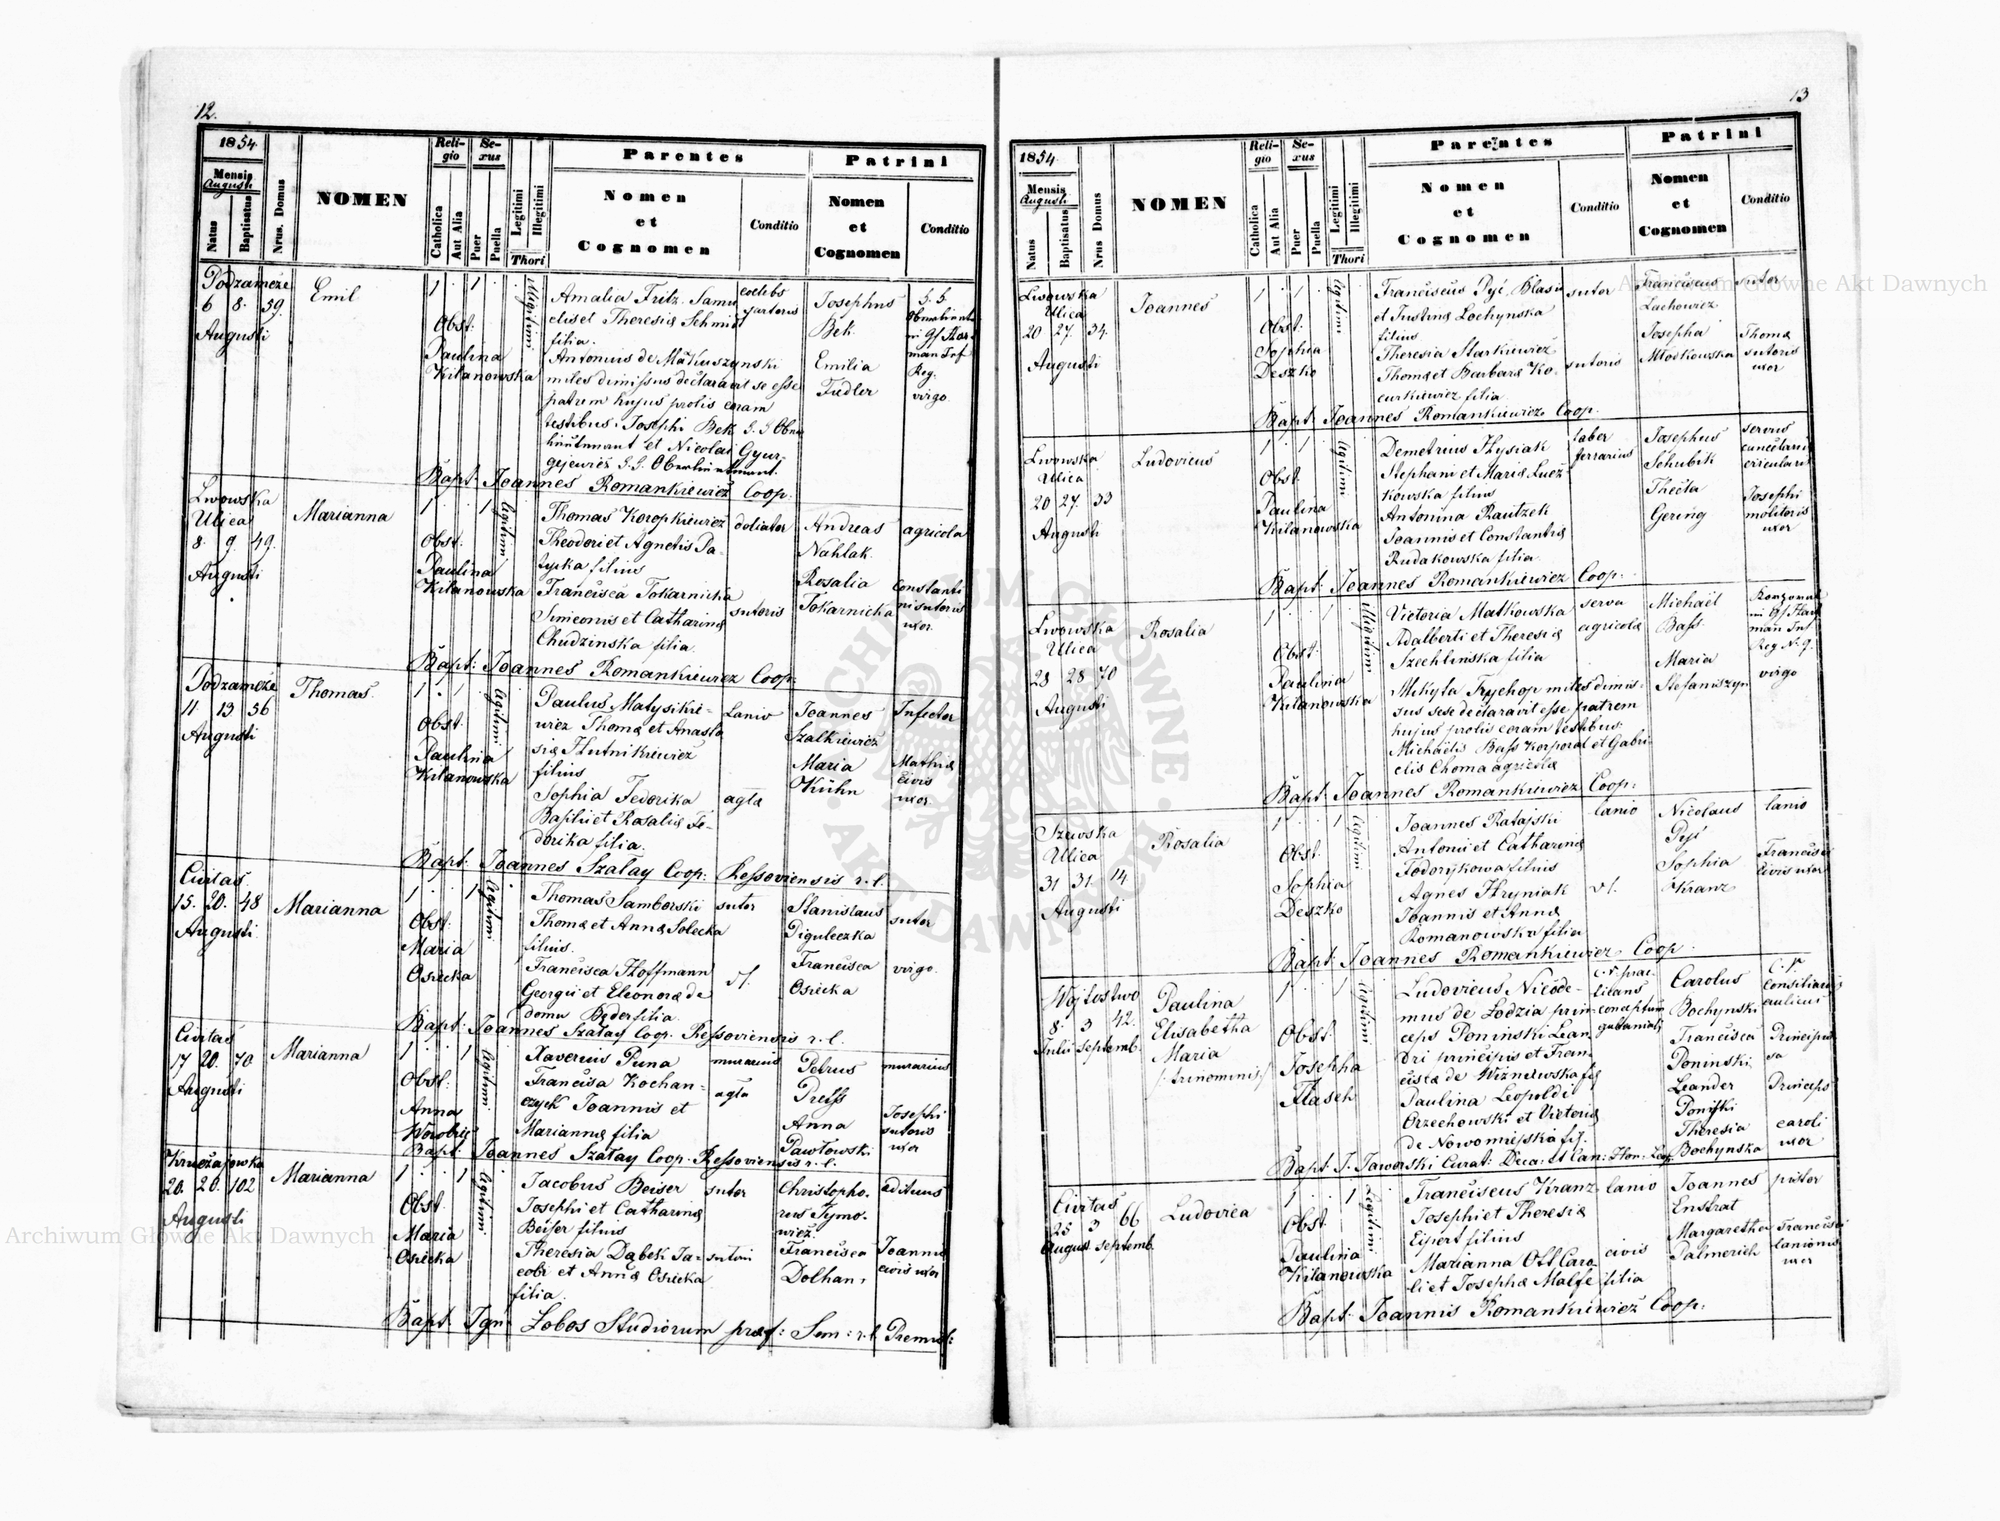 12.
1854.
Mensis
Augusti
Natus
Baptisatus
Nrus. Domus
NOMEN
Religio
Catholica
Aut Alia
Sexus
Puer
Puella
Legitimi
Illegitimi
Thori
Parentes
Nomen
et
Cognomen
Conditio
Patrini
Nomen
et
Cognomen
Conditio
Podzamcze
6 8. 59.
Augusti
Emil
1 1
Obst:
Paulina
Kilanowska
illegitimi
Amalia Fritz. Samu
elis et Theresiæ Schmidt
filia.
Antonius de Makuszynski
miles dimissus declaravit se esse
patrem hujus prolis coram
testibus: Josephi Bek
et Nicolai Gyur-
gjewicz
coelebs
Josephus
Bek
Emilia
Fidler
virgo.
Bapt: Joannes Romankiewicz Coop:
Lwowska
Ulica
8. 9. 49.
Augusti
Marianna
1 1
Obst:
Paulina
Kilanowska
legitimi
Thomas Koropkiewicz
Theodori et Agnetis Pa-
tycka filius
Francisca Tokarnicka
Simeonis et Catharinæ
Chudzinska filia.
doliator
sutoris
Andreas
Nahlak
Rosalia
Tokarnicka
agricola
Constanti
ni sutoris
uxor.
Bapt: Joannes Romankiewicz Coop:
Podzamcze
11. 13 56
Augusti
Thomas.
1 1
Obst.
Paulina
Kilanowska
legitimi
Paulus Matysikie-
wicz Thomæ et Anasta
siæ Hutnikiewicz
filius
Sophia Fedorika
Bapti et Rosaliæ Fe-
dorika filia.
Lanio
agtæ
Joannes
Szalkiewicz
Maria
Kühn
Infector
Mathiæ
civis
uxor
Bapt: Joannes Szalay Coop: Ressoviensis r. l.
Civitas
15. 20. 48
Augusti.
Marianna
1 1
Obst.
Maria
Osiecka
legitimi
Thomas Samborski
Thomæ et Annæ Solecka
filius.
Francisca Hoffmann
Georgii et Eleonoræ de
domo Beder filia.
sutor
vl.
Stanislaus
Piguleczka
Francisca
Osiecka
sutor
virgo.
Bapt: Joannes Szalay Coop: Ressoviensis r. l.
Civitas
17 20. 70
Augusti
Marianna
1 1
Obst:
Anna
Worobiec
legitimi
Xaverius Puna
Francisa Kochan-
czyck Joannis et
Mariannæ filia
murarius
agtæ
Petrus
Preiss
Anna
Pawłowski
murarius
Josephi
sutoris
uxor
Bapt: Joannes Szalay Coop. Ressoviensis r. l.
20. 20. 102
Augusti
Marianna
1 1
Obst.
Maria
Osiecka
legitimi
Jacobus Beiser
Josephi et Catharinæ
Beiser filius
Theresia Dąbek Ja-
cobi et Annæ Osiecka
filia.
sutor
Christopho-
rus Tymo-
wicz.
Francisca
Dolhan,
ædituus
Joannis
civis uxor
Bapt. Ign: Lobos Studiorum præf: Sem: r. l. Premisl:
13
1854.
Mensis
Augusti
Natus
Baptisatus
Nrus Domus
NOMEN
Religio
Catholica
Aut Alia
Sexus
Puer
Puella
Legitimi
Illegitimi
Thori
Parentes
Nomen
et
Cognomen
Conditio
Patrini
Nomen
et
Cognomen
Conditio
Lwowska
Ulica
20 27. 34.
Augusti
Joannes
1 1
Obst:
Sophia
Deszko
legitimi
Franciscus Pyć. Blasii
et Justinæ Lochynska
filius
Theresia Starkiewicz
Thomæ et Barbaræ Ko-
curkiewicz filia.
sutor
sutoris
Franciscus
Lachowicz
Josepha
Młodkowska
sutor
Thomæ
sutoris
uxor
Bapt: Joannes Romankiewicz Coop.
Lwowska
Ulica
20 27. 33
Augusti
Ludovicus
1 1
Obst.
Paulina
Kilanowska
legitimi
Demetrius Hysiak
Stephani et Mariæ Lucz-
kowska filius
Antonina Rautzek
Joannis et Constantiæ
Rudakowska filia.
faber
ferrarius
Josephus
Schubik
Thecla
Gering
servus
Josephi
molitoris
uxor
Bapt: Joannes Romankiewicz Coop:
Lwowska
Ulica
23 28 70
Augusti
Rosalia
1 1
Obst:
Paulina
Kilanowska
illegitimi
Victoria Matkowska
Adalberti et Theresiæ
Szechlinska filia
Mikyta Trychop miles dimis-
sus sese declaravit esse patrem
hujus prolis coram testibus
Michaëlis Bass Korporal et Gabri-
elis Choma agricolæ
serva
agricolæ
Michaël
Bass.
Maria
Stefaniszyn
virgo
Bapt: Joannes Romankiewicz Coop:
Szewska
Ulica
31 31. 14.
Augusti
Rosalia
1 1
Obst.
Sophia
Deszko
legitimi
Joannes Ratajski
Antonii et Catharinæ
Todorykowa filius
Agnes Hryniak
Joannis et Annæ
Romanowska filia
lanio
vl.
Nicolaus
Pyć
Sophia
Kranz
lanio
Francisci
civis uxor
Bapt: Joannes Romankiewicz Coop
Wojtostwo
8. 3 42.
Julii Septemb.
Paulina
Elisabetha
Maria
/: trinominis :/
1 1
Obst
Josepha
Flasch
legitimi
Ludovicus Nicode-
mus de Lodzia prin-
ceps Poninski Lean
dri principis et Fran-
ciscæ de Wizniewska fil
Paulina Leopoldi
Orzechowski et Victoriæ
de Nowomiejska fil.
Carolus
Bochynski
Francisca
Poninski
Leander
Theresia
Bochynska
C. r.
Consiliarius
aulicus
Principis
sa
Princeps
caroli
uxor
Bapt: J. Jaworski Curat:
Civitas
25 3 66
August septemb.
Ludovica
1 1
Obst.
Paulina
Kilanowska
legitimi
Franciscus Kranz
Josephi et Theresiæ
Eipert filius
Marianna Ott Caro
li et Josephæ Malfe filia
lanio
civis
Joannes
Enstrat
Margaretha
Palmerich
pistor
Francisci
lanionis
uxor
Bapt: Joannis Romankiewicz Coop:
Archiwum Główne Akt Dawnych
Archiwum Główne Akt Dawnych
ARCHIWUM GŁÓWNE · AKT DAWNYCH ·